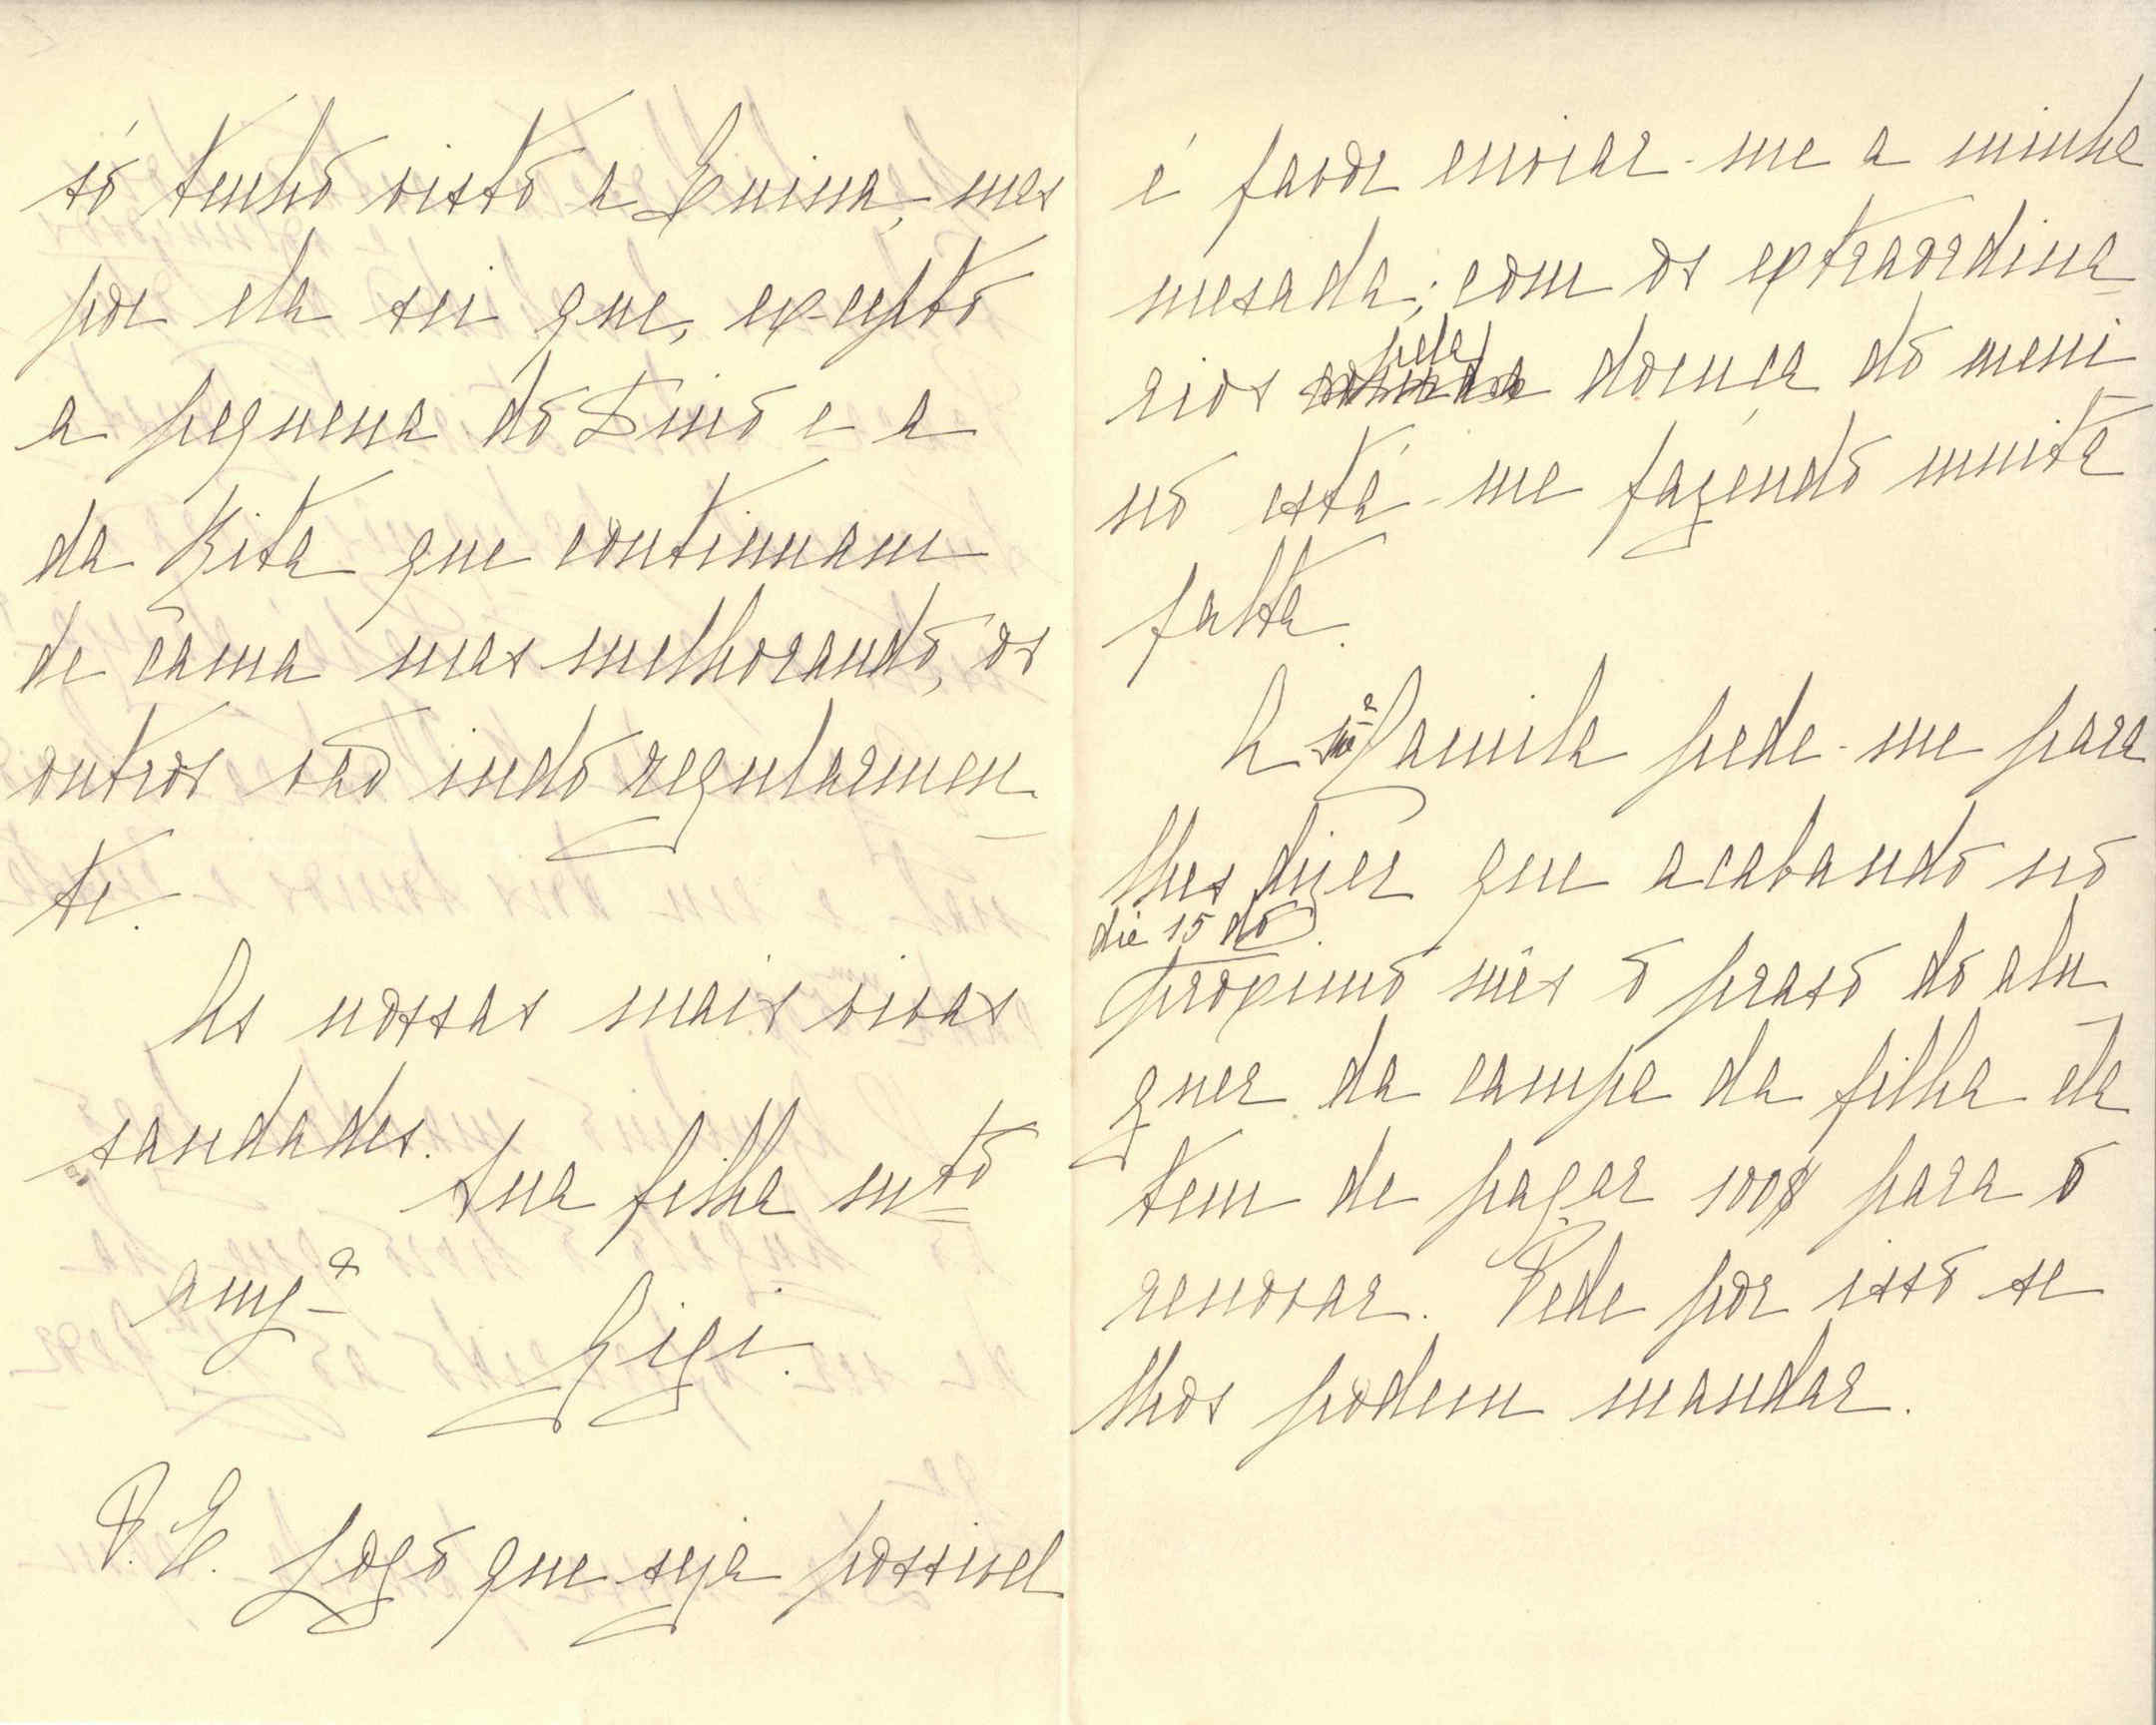 só tenho visto a Enina, mas
por ela sei que, excepto
a pequena do Dino e a
da Rita que continuam
de cama mas melhorando, os
outros vão indo regularmen-
te.
As nossas mais vivas
saudades.
Sua filha mto
amga
Gigi.
P.S. Logo que seja possivel
é favor enviar-me a minha
mesada; com os extraordina-
rios pela doença do meni-
no está-me fazendo muita
falta.
A Sra Camila pede-me para
lhes dizer que acabando no
dia 15 do
proximo mês o praso do alu-
guer da campa da filha ela
tem de pagar 100$ para o
renovar. Pede por isso se
lhos podem mandar.